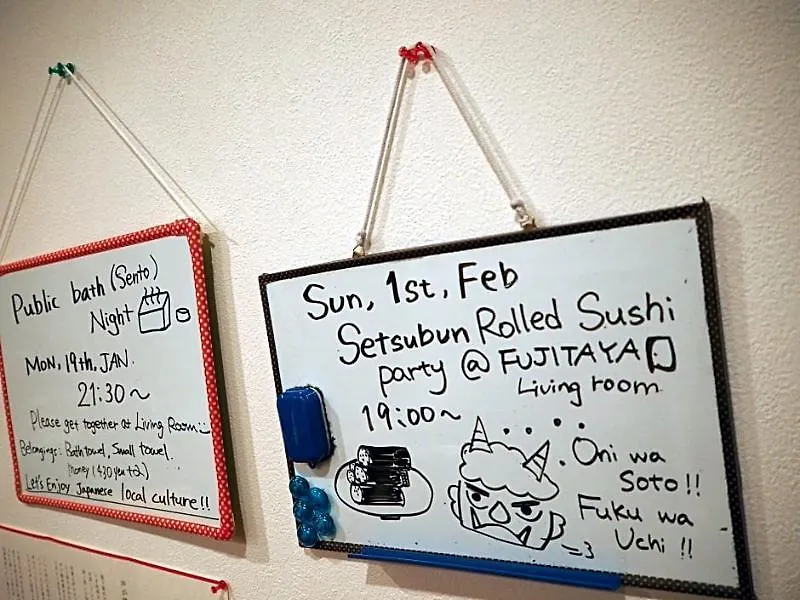 Public bath (Sento)
Night
MON, 19th, JAN.
21:30~
Please get together at Living Room
Belongings: Bath towel, Small towel.
money (430 yen
Let's Enjoy Japanese local culture!!
Sun, 1st, Feb
Setsubun Rolled Sushi
party @ FUJITAYA
Living room
19:00~
Oni wa
Soto!!
Fuku wa
Uchi!!